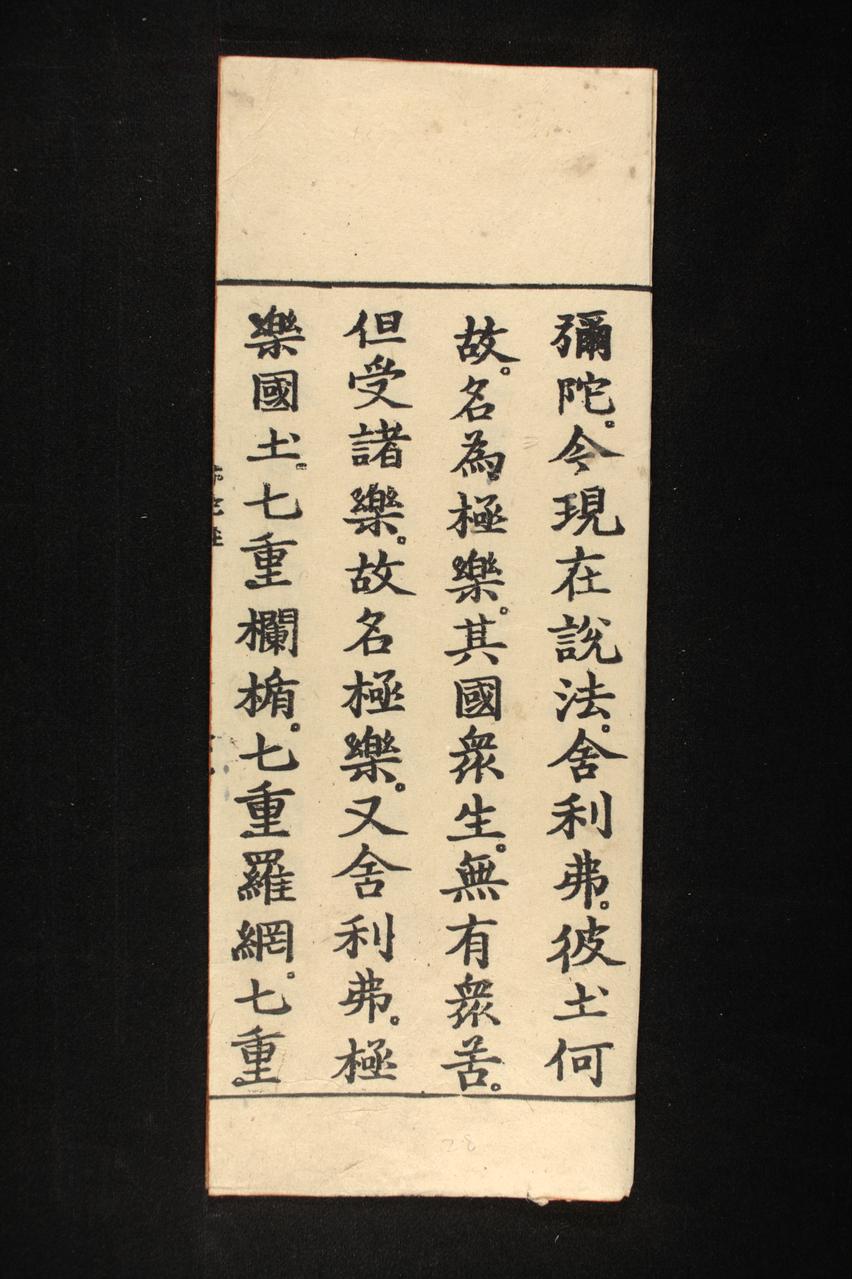 彌陀。今現在說法。舍利弗。彼土何
故。名為極樂。其國衆生。無有衆苦。
但受諸樂。故名極樂。又舍利弗。極
樂國土。七重欄楯。七重羅網。七重
28